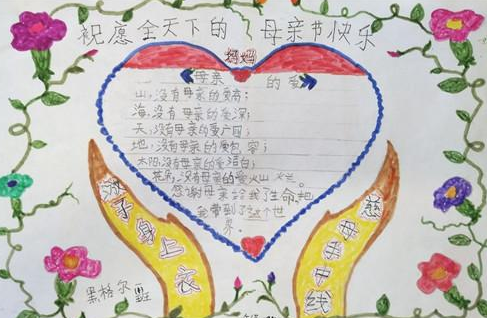 祝愿全天下的母亲节快乐
妈妈
母亲的爱
山,没有母亲的爱高;
海,没有母亲的爱深;
天,没有母亲的爱广阔;
地,没有母亲的爱包容;
太阳,没有母亲的爱温白;
花朵,没有母亲的爱火山火兰。
感谢母亲给我了生命,她
我带到了这个世
界。
游子身上衣
慈母手中线
黑格尔班